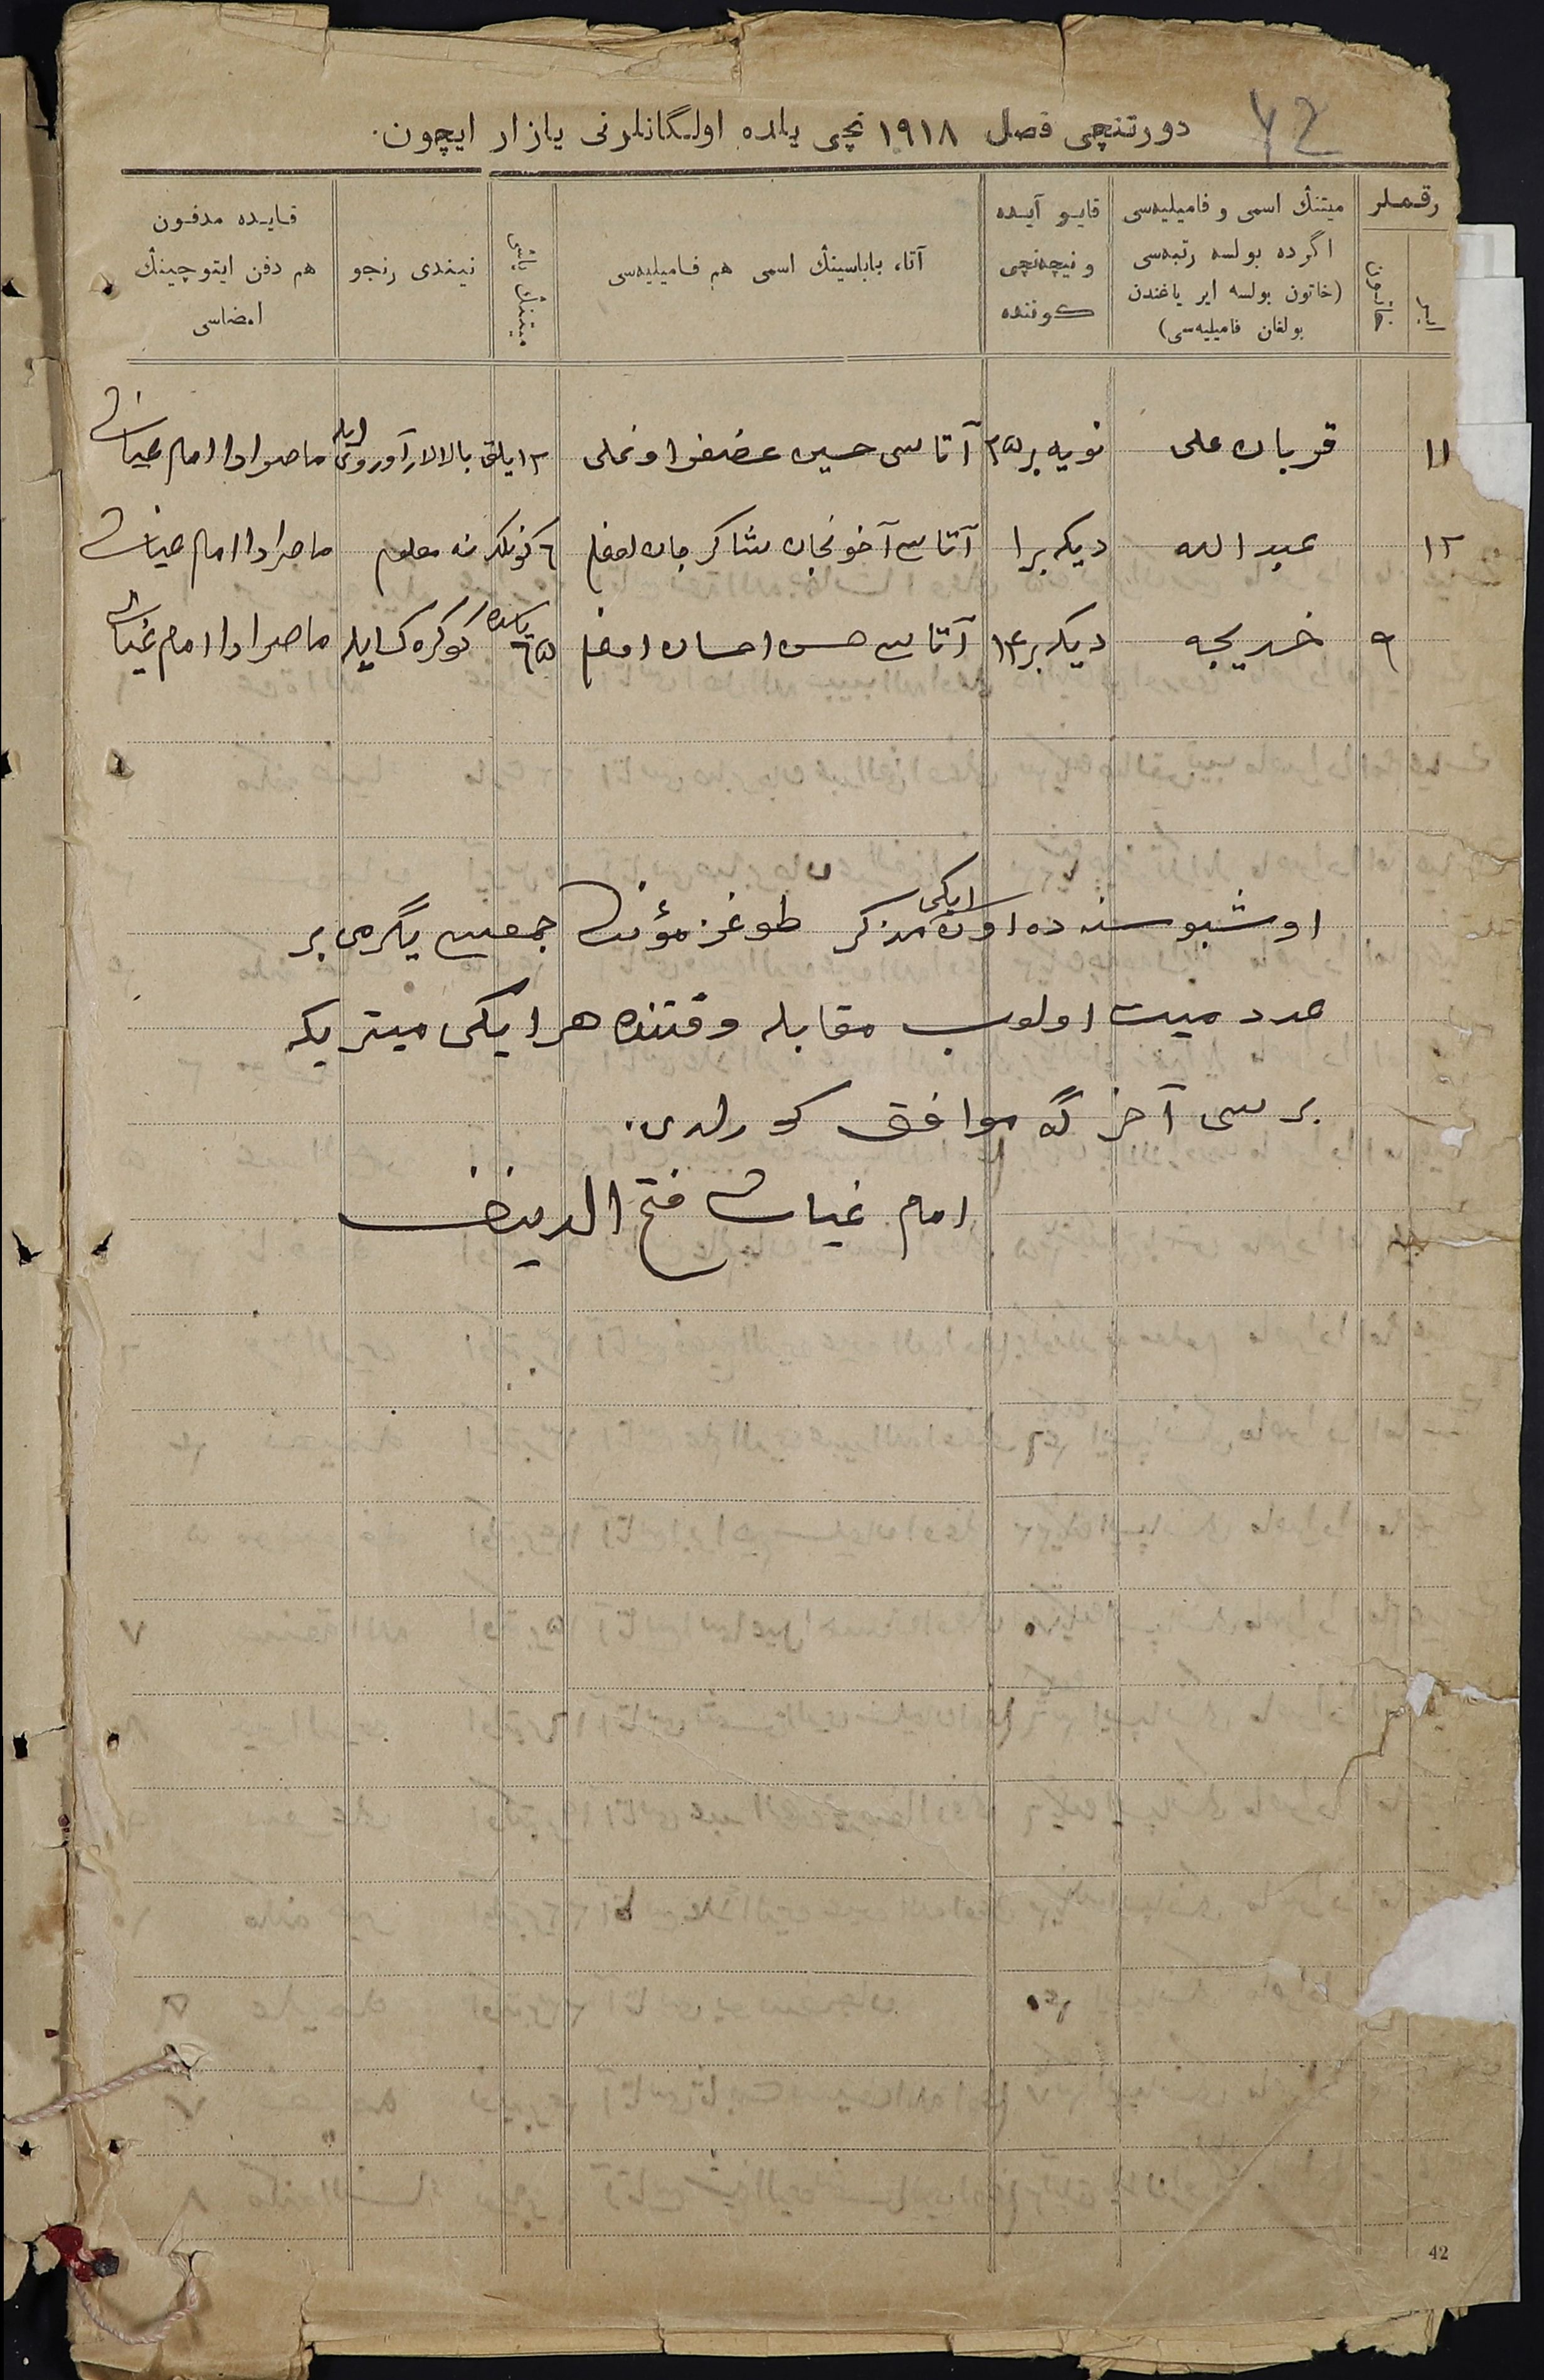 42
دورتنچی فصل ۱۹۱۸ نچی یلده اولگانلرنی یازار ایچون.
رقملر
ایر
خاتون
میتنڭ اسمی و فامیلیه‌سی اگرده بولسه رتبه‌سی (خاتون بولسه ایر یاغندن بولغان فامیلیه‌سی)
قایو آیده و نیچه‌نچی کوننده
آتا، باباسینڭ اسمی هم فامیلیه‌سی
میتنڭ یاشی
نیندی رنجو
قایده مدفون هم دفن ایتوچینڭ امضاسی
۱۱ قربان علی نویه بر ۲۵ آتاسی حسین غضنفر اوغلی ۱۲ یلق بالالار آوروی ایله ماصرادا امام غیاث
۱۲ عبد الله دیکه بر ۱ آتاسی آخونجان شاکر جان اوغلی ٦ کونلک نه معلوم ماصرادا امام غیاث
۹ خدیجه دیکه بر ۱۴ آتاسی حسن احسان اوغلی ٦۵ یاشده کوکره ک ایله ماصرادا امام غیاث
اوشبو سنه ده اون ایکی مذکر طوغز مؤنث جمعسی یگرمی بر
عدد میت اولوب مقابله وقتنده هر ایکی میتریکه
برسی آخرگه موافق کورلدی.
امام غیاث فتح الدینف
42